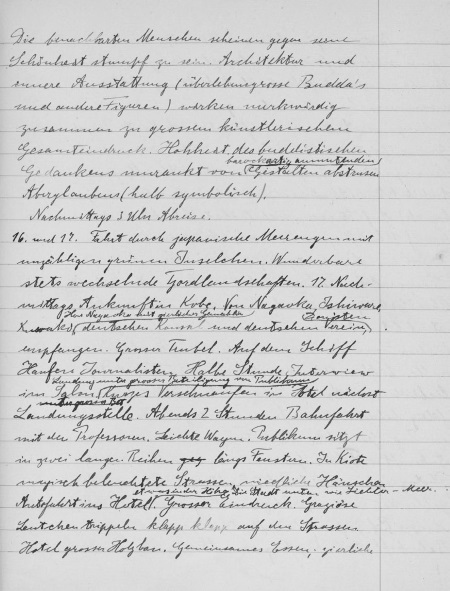 Die benachbarten Menschen scheinen gegen seine
Schönheit stumpf zu sein. Architektur und
innere Ausstattung (überlebensgrosse Budda's
und andere Figuren) wirken merkwürdig
zusammen zu grossem künstlerischem
Gesamteindruck. Hohheit des buddistischen
barockartig anmutenden
Gedankens umrankt von Gestalten abstrusen
Aberglaubens (halb symbolisch).
Nachmittags 3 Uhr Abreise.
16. und 17. Fahrt durch japanische Meerengen mit
unzähligen grünen Inselchen. Wunderbare
stets wechselnde Fjordlandschaften. 17. Nach-
mittags Ankunft in Kobe. Von Nagaoka, Ishiwara,
Kuwaki deutschen Konsul und deutschem Verein
empfangen. Grosser Trubel. Auf dem Schiff
Haufen Journalisten. Halbe Stunde Interview
im Salon.
Landung unter grosser Beteiligung von Publikum
Verschnaufen in Hotel nächst
Landungsstelle. Abends 2 Stunden Bahnfahrt
mit den Professoren. Leichte Wagen. Publikum sitzt
in zwei langen Reihen längs Fenstern. In Kioto
magisch beleuchtete Strassen, niedliche Häuschen
Autofahrt ins Hotel. Grosser Eindruck. Graziöse
Leutchen trippeln klapp klapp auf den Strassen
Hotel grosser Holzbau. Gemeinsames Essen, zierliche